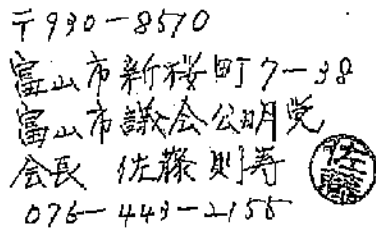 〒930-8510
富山市新桜町7-38
富山市議会公明党
会長 佐藤則寿 佐藤
076-443-2155